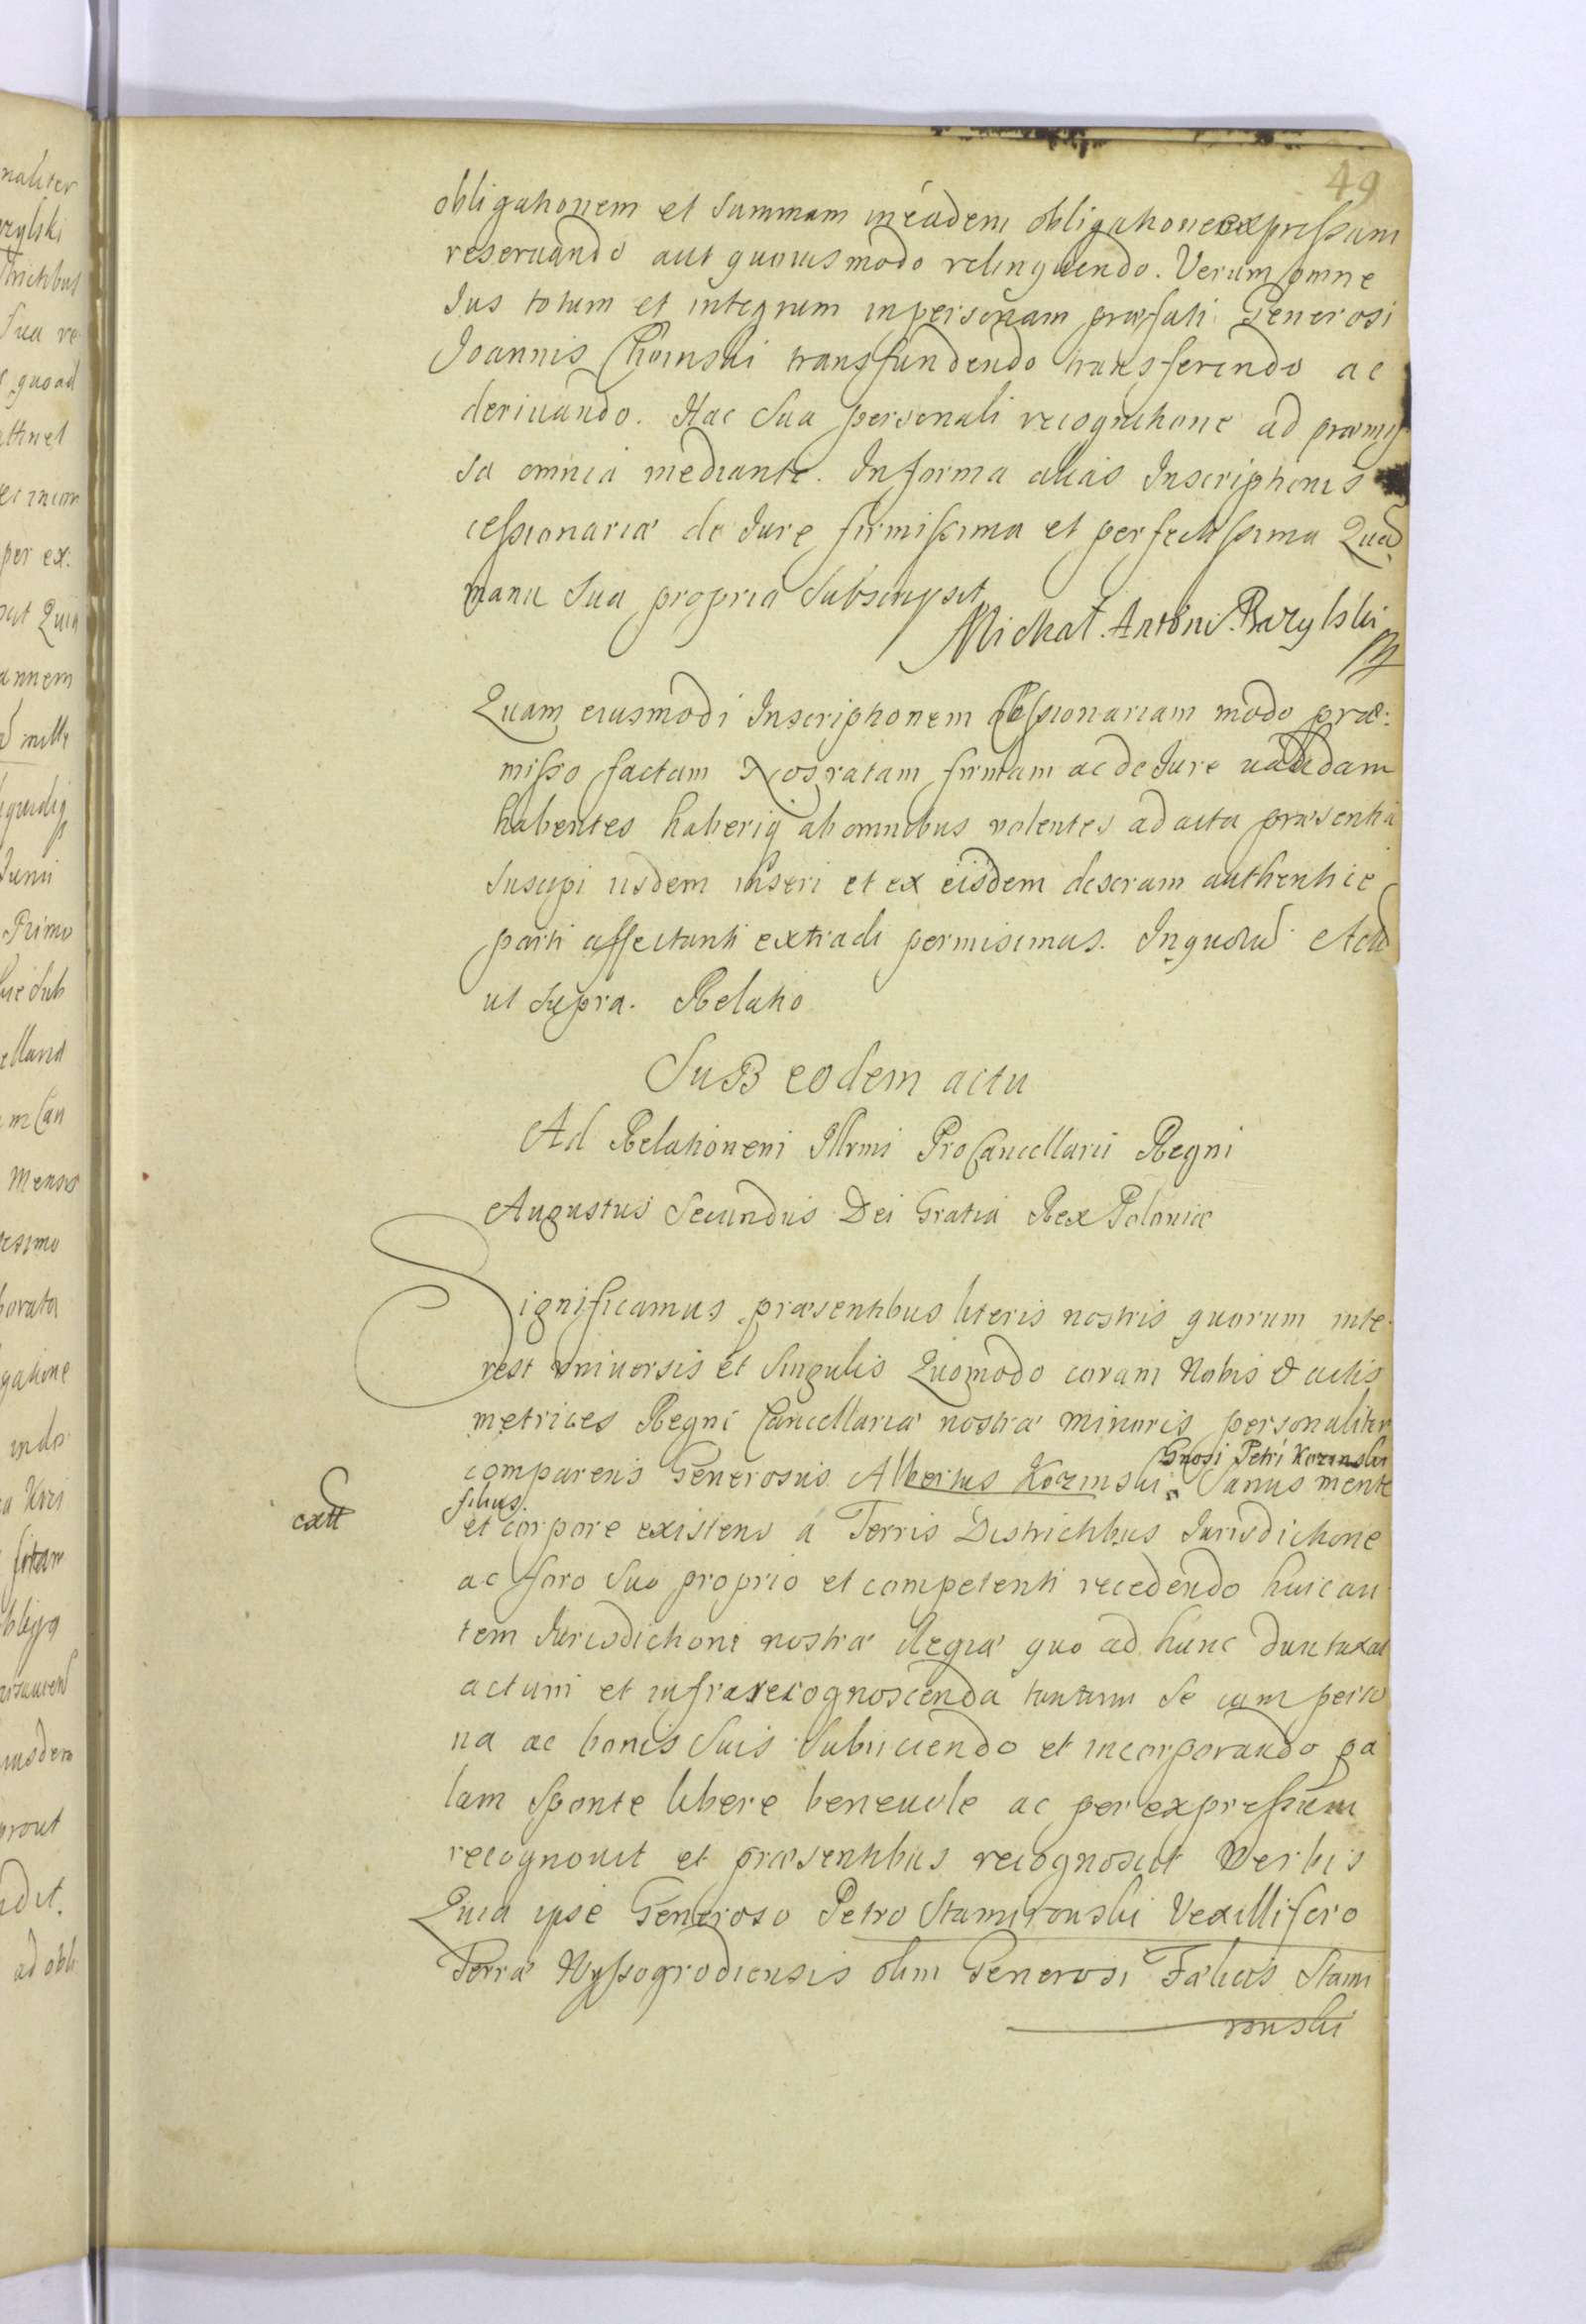 49
obligationem et summam in eadem obligatione expressam
reseruando aut quouismodo relinquendo. Verum omne
Ius totum et integrum in personam præfati Generosi
Joannis Choinski transfundendo transferendo ac
deriuando. Hac sua personali recognitione ad præmis
sa omnia mediante. In forma alias Inscriptionis
cessionariæ de Iure firmissima et perfectissima Quā
manu sua propria subscripsit
Michał. Antoni. Bazylski
Quam eiusmodi Inscriptionem Cessionariam modo præ:
misso factam Nos ratam firmam ac de Iure ualidam
habentes haberiq ab omnibus volentes ad acta præsentia
suscipi iisdem inseri et ex eisdem descram authentice
parti affectanti extradi permisimus. In quorū Actū
ut supra. Relatio
SuB eodem actu
Ad Relationem Illrmi ProCancellarii Regni
Augustus Secundus Dei Gratia Rex Poloniæ
Significamus præsentibus literis nostris quorum inte
rest vniuersis et singulis Quomodo coram Nobis & actis
metrices Regni Cancellariæ nostræ minoris personaliter
Gnosi Petri Kozinski
comparens Generosus Albertus Kozinski Sanus mente
filius.
extt
et corpore existens a Terris Districtibus Iurisdictione
ac foro suo proprio et competenti recedendo huic au
tem Iurisdictioni nostræ Regiæ quo ad hunc duntaxat
actum et infrarecognoscenda tantum se cum perso
na ac bonis suis subiiciendo et incorporando pa
lam sponte libere beneuole ac per expressum
recognouit et præsentibus recognoscit Verbis
Quia ipse Generoso Petro Stamirowski Vexillifero
Terræ Wyssogrodiensis olim Generosi Fælicis Stami
rowski